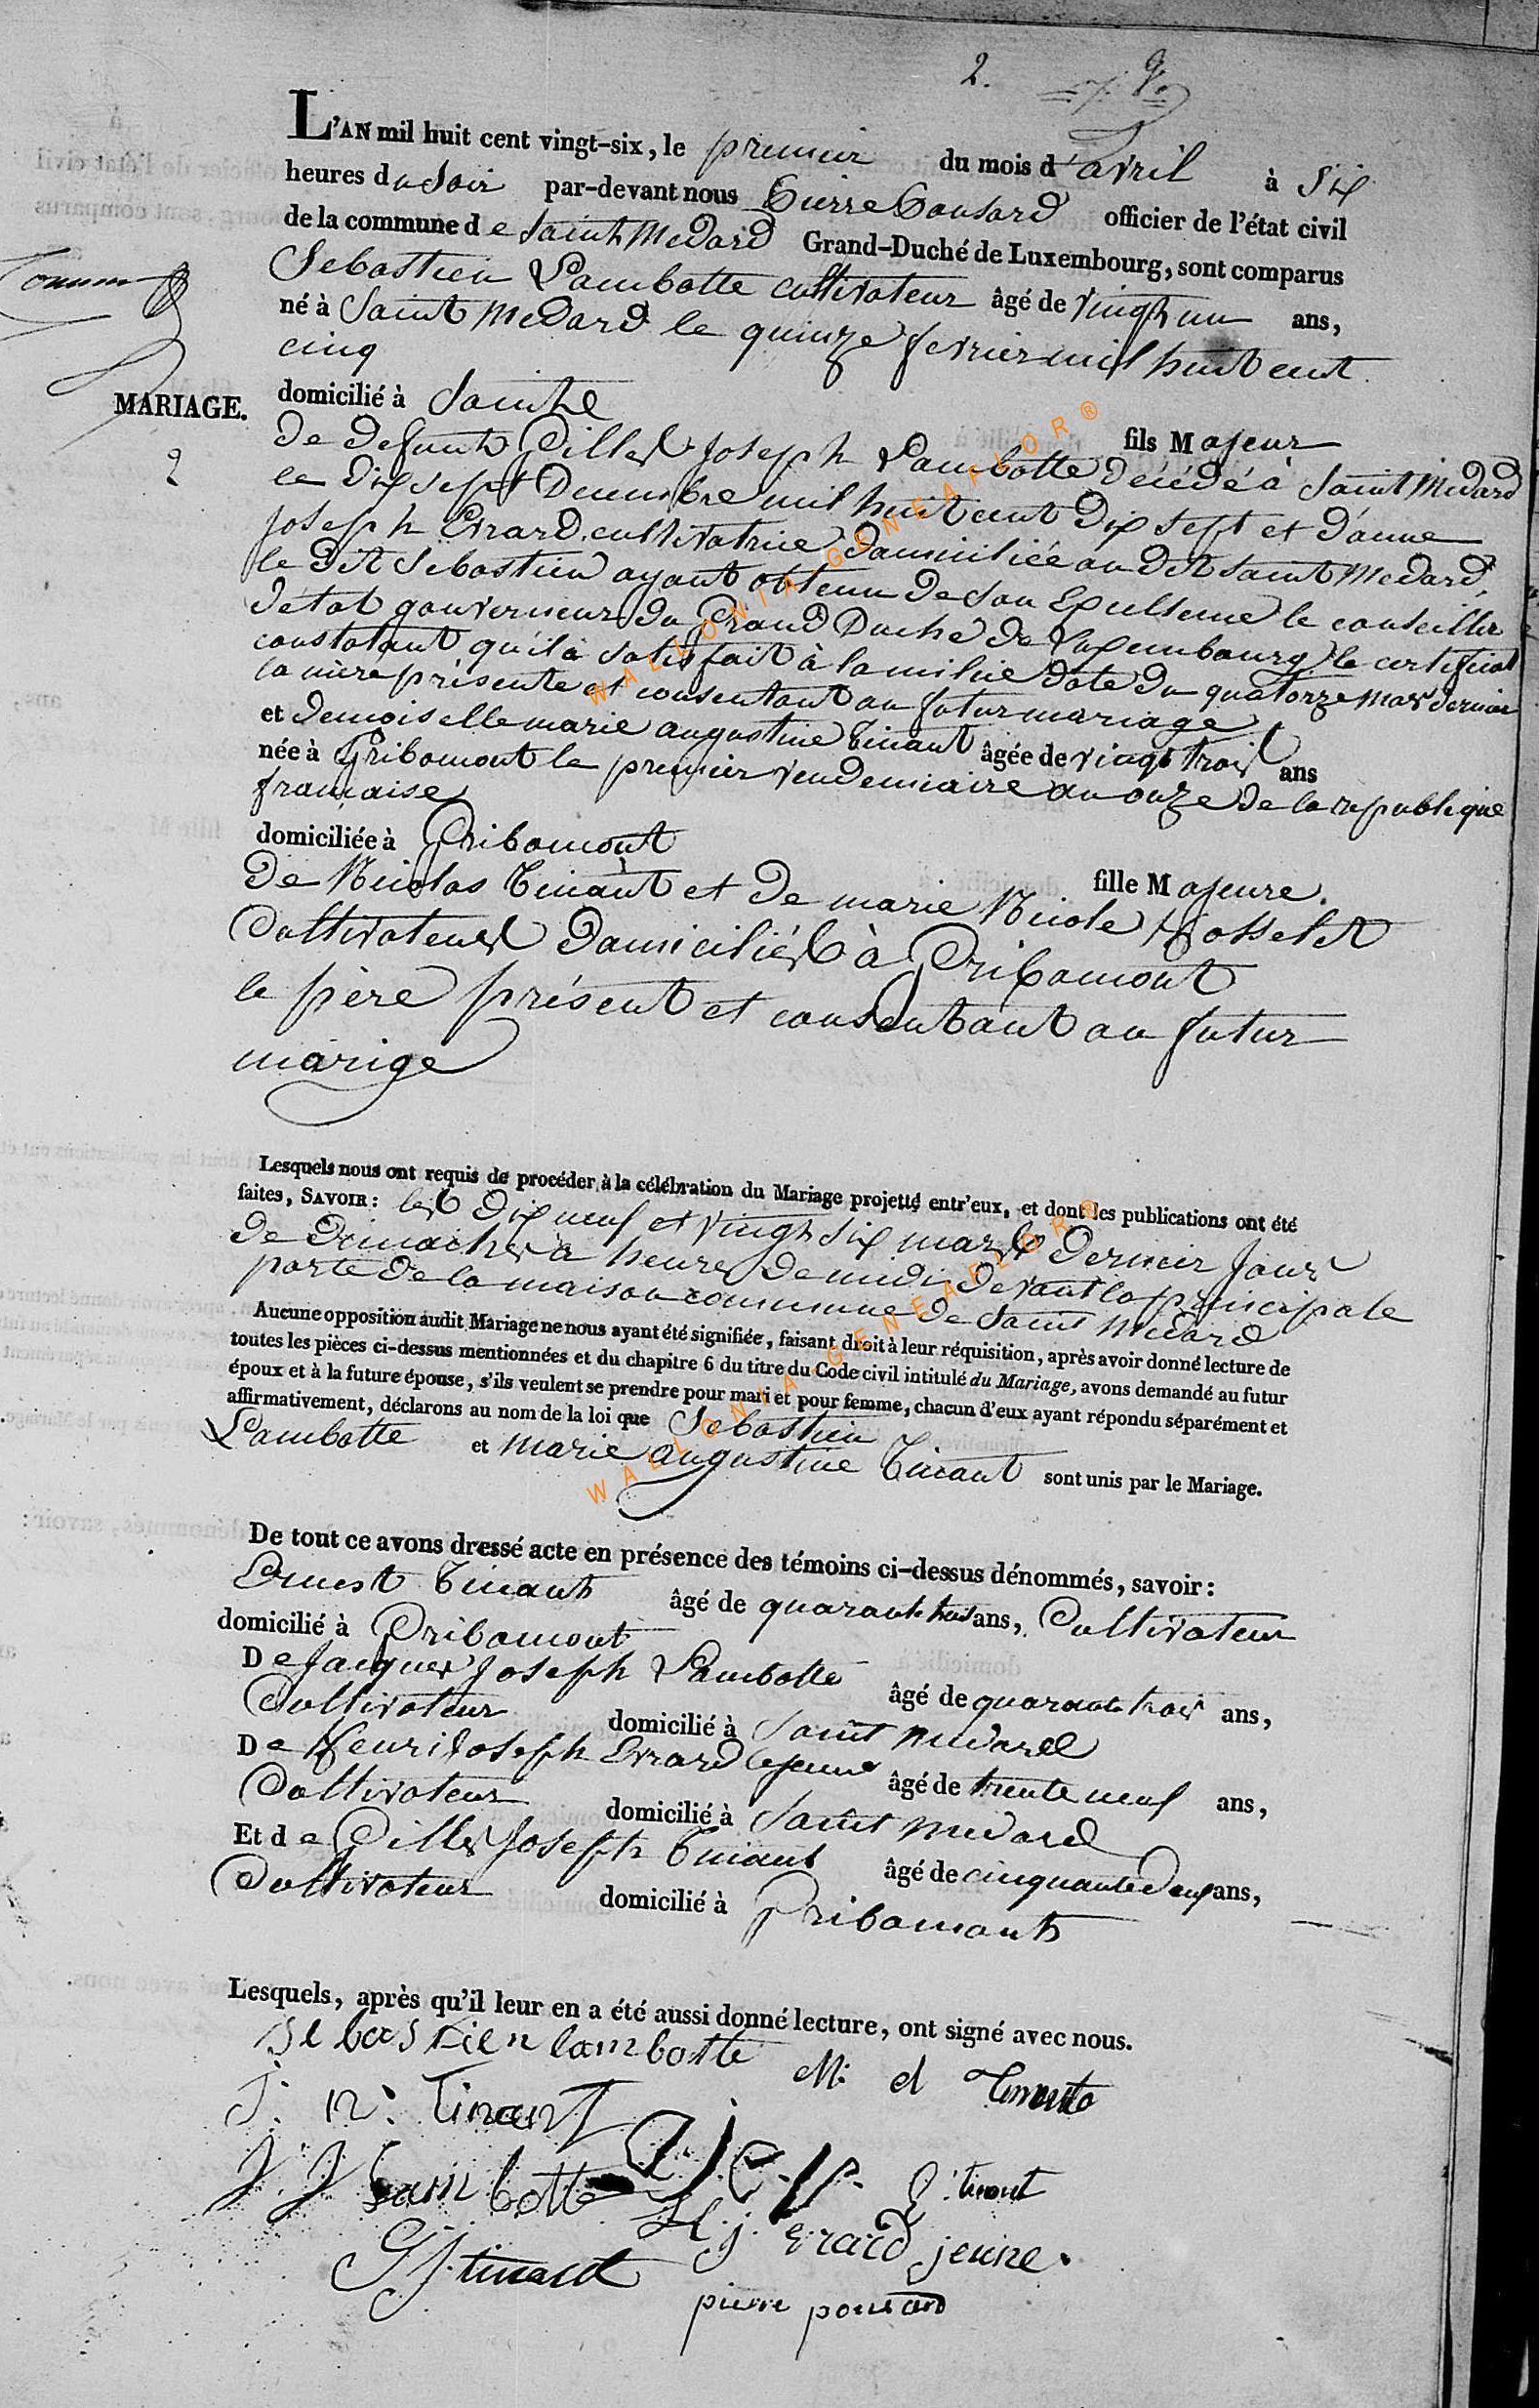 2.
L'AN mil huit cent vingt-six, le premier du mois d'avril à six
heures du soir par-devant nous Pierre Ponsard officier de l'état civil
de la commune de Saint Medard Grand-Duché de Luxembourg, sont comparus
Sebastien Lambotte cultivateur âgé de vingt un ans,
né à Saint Medard le quinze fevrier mil huit cent
cinq
MARIAGE.
2
domicilié à
fils Majeur
de defunt Gilles Joseph Lambotte décédé à Saint Médard
le dix sept Decembre mil huit cent dix sept et d'anne
Joseph Evrard cultivatrice domiciliée au dit Saint Medard,
le dit Sebastien ayant obtenu de son Exellence le conseiller
d'état gouverneur du Grand Duché de Luxembourg le certificat
constatant qu'il a satisfait à la milice daté du quatorze mars dernier
la mère présente et consentant au futur mariage
et demoiselle marie augustine Tinant âgée de vingt trois ans
née à Gribomont le premier vendemiaire an onze de la republique
française
domiciliée à Gribomont
fille Majeure.
de Nicolas Tinant et de marie Nicole Hosselet
Cultivateurs domiciliés à Gribomont
le père présent et consentant au futur
marige
Lesquels nous ont requis de procéder à la célébration du Mariage projetté entr'eux, et dont les publications ont été
faites, SAVOIR: les dix neuf et vingt six mars dernier jours
de Dimaches à heures de midi devant la principale
porte de la maison commune de Saint Medard
Aucune opposition audit Mariage ne nous ayant été signifiée, faisant droit à leur réquisition, après avoir donné lecture de
toutes les pièces ci-dessus mentionnées et du chapitre 6 du titre du Code civil intitulé du Mariage, avons demandé au futur
époux et à la future épouse, s'ils veulent se prendre pour mari et pour femme, chacun d'eux ayant répondu séparément et
affirmativement, déclarons au nom de la loi que Sebastien
Lambotte et marie augustine Tinant sont unis par le Mariage.
De tout ce avons dressé acte en présence des témoins ci-dessus dénommés, savoir:
Ernest Tinant âgé de quarante trois ans, Cultivateur
domicilié à Gribomont
De Jacques Joseph Lambotte âgé de quarante trois ans,
Cultivateur domicilié à Saint Medard
De Henri Joseph Evrard le jeune âgé de trente neuf ans,
Cultivateur domicilié à Saint Medard
Et de Gilles Joseph Tinant âgé de cinquante deux ans,
Cultivateur domicilié à Gribomont
Lesquels, après qu'il leur en a été aussi donné lecture, ont signé avec nous.
sebastien lambotte
J. n. Tinant
J J Lambotte
E. tinant
H. j. Evrard jeune.
G J. tinant
pierre ponsard
WALLONIA-GENEAFLOR®
WALLONIA-GENEAFLOR®